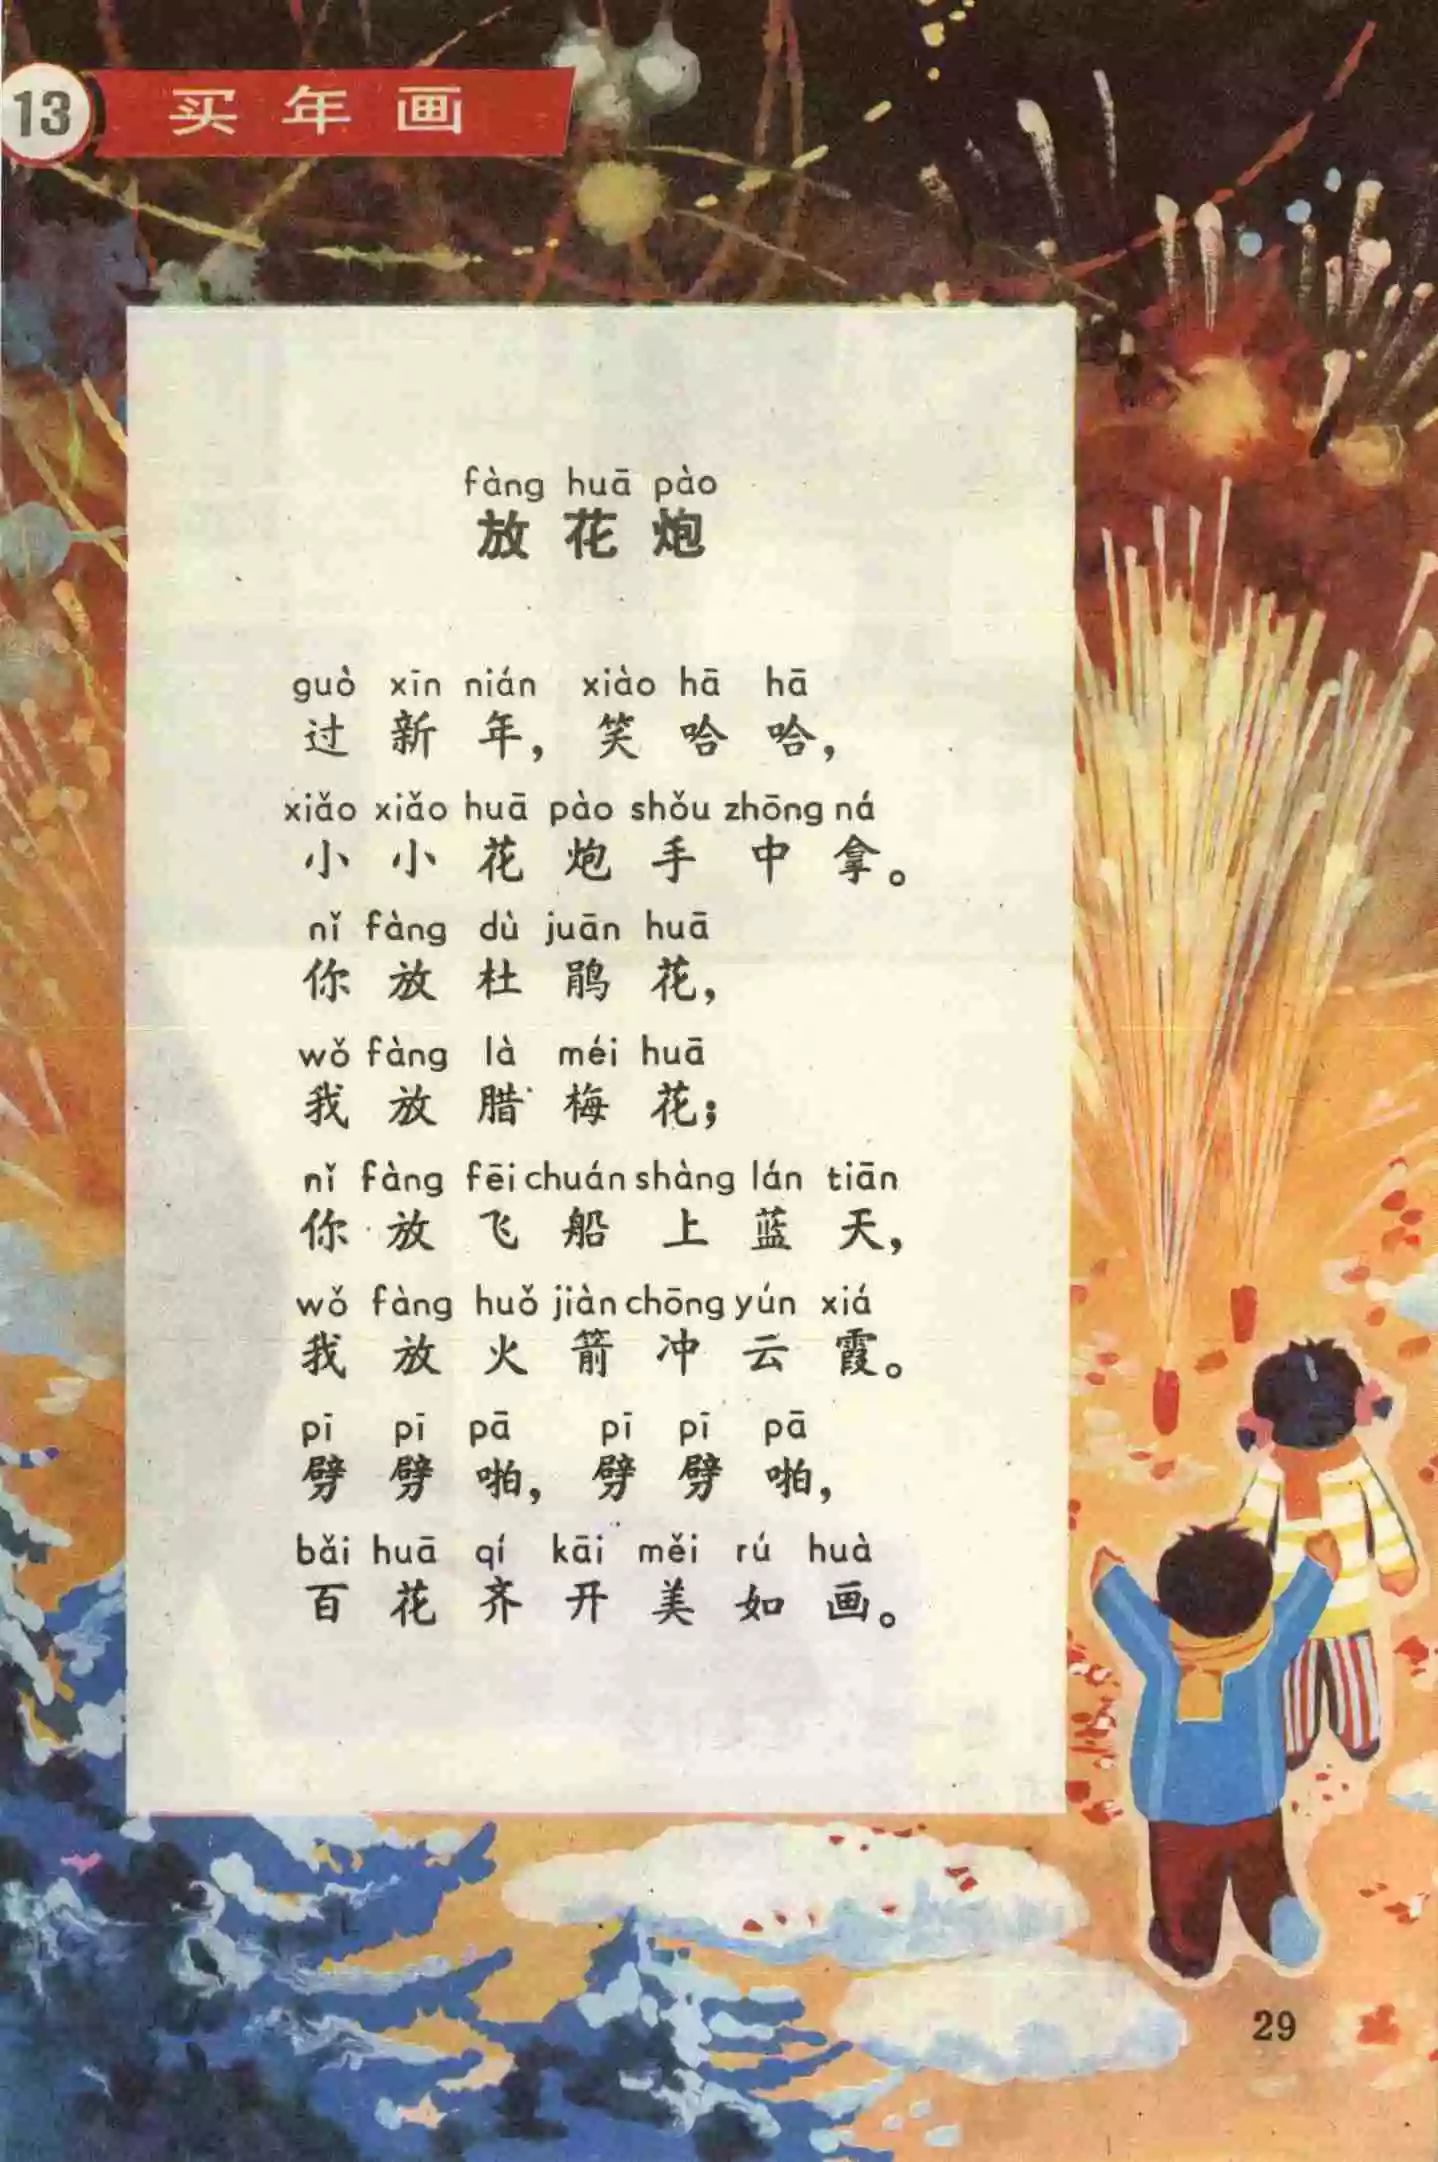 13 买年画
fàng huā pào
放花炮
guò xīn nián xiào hā hā
过新年，笑哈哈，
xiǎo xiǎo huā pào shǒu zhōng ná
小小花炮手中拿。
nǐ fàng dù juān huā
你放杜鹃花，
wǒ fàng là méi huā
我放腊梅花；
nǐ fàng fēi chuán shàng lán tiān
你放飞船上蓝天，
wǒ fàng huǒ jiàn chōng yún xiá
我放火箭冲云霞。
pī pī pā pī pī pā
劈劈啪，劈劈啪，
bǎi huā qí kāi měi rú huà
百花齐开美如画。
29